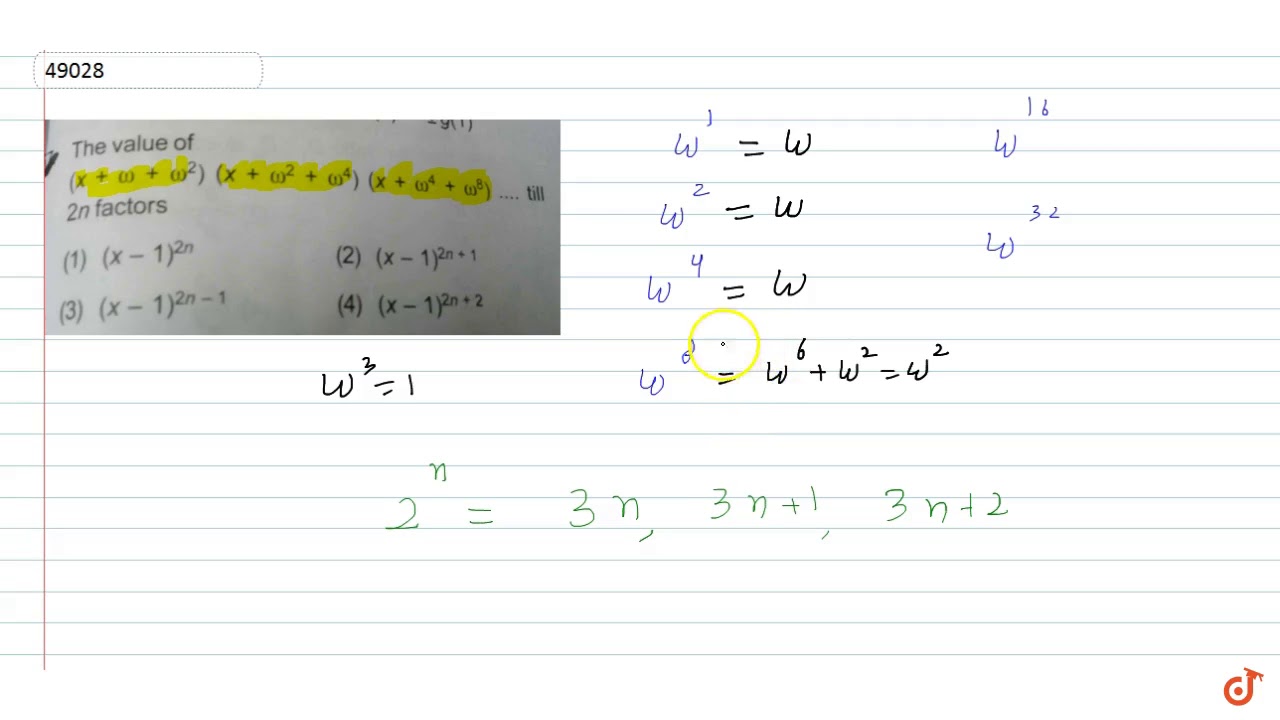 49028
= g(1)
The value of
(x + ω + ω²) (x + ω² + ω⁴) (x + ω⁴ + ω⁸) .... till
2n factors
(1) (x − 1)²ⁿ
(2) (x − 1)²ⁿ ⁺ ¹
(3) (x − 1)²ⁿ ⁻ ¹
(4) (x − 1)²ⁿ ⁺ ²
ω³ = 1
ω¹ = ω
ω² = ω
ω⁴ = ω
ω⁸ = ω⁶ + ω² = ω²
ω¹⁶
ω³²
2ⁿ = 3n, 3n+1, 3n+2